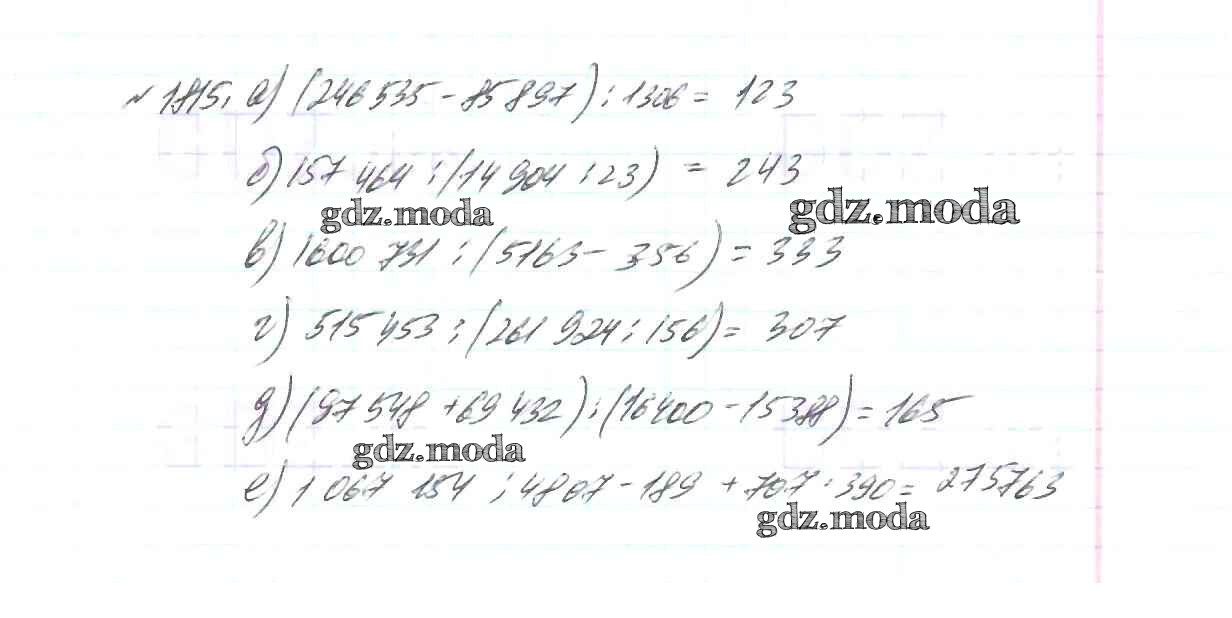 № 1815. а) (246 535 - 85 897) : 1306 = 123
б) 157 464 : (14 904 : 23) = 243
gdz.moda gdz.moda
в) 1600 731 : (5163 - 356) = 333
г) 515 453 : (261 924 : 156) = 307
д) (97 548 + 69 432) : (16400 - 15388) = 165
gdz.moda
е) 1 067 154 : 4807 - 189 + 707 · 390 = 275763
gdz.moda